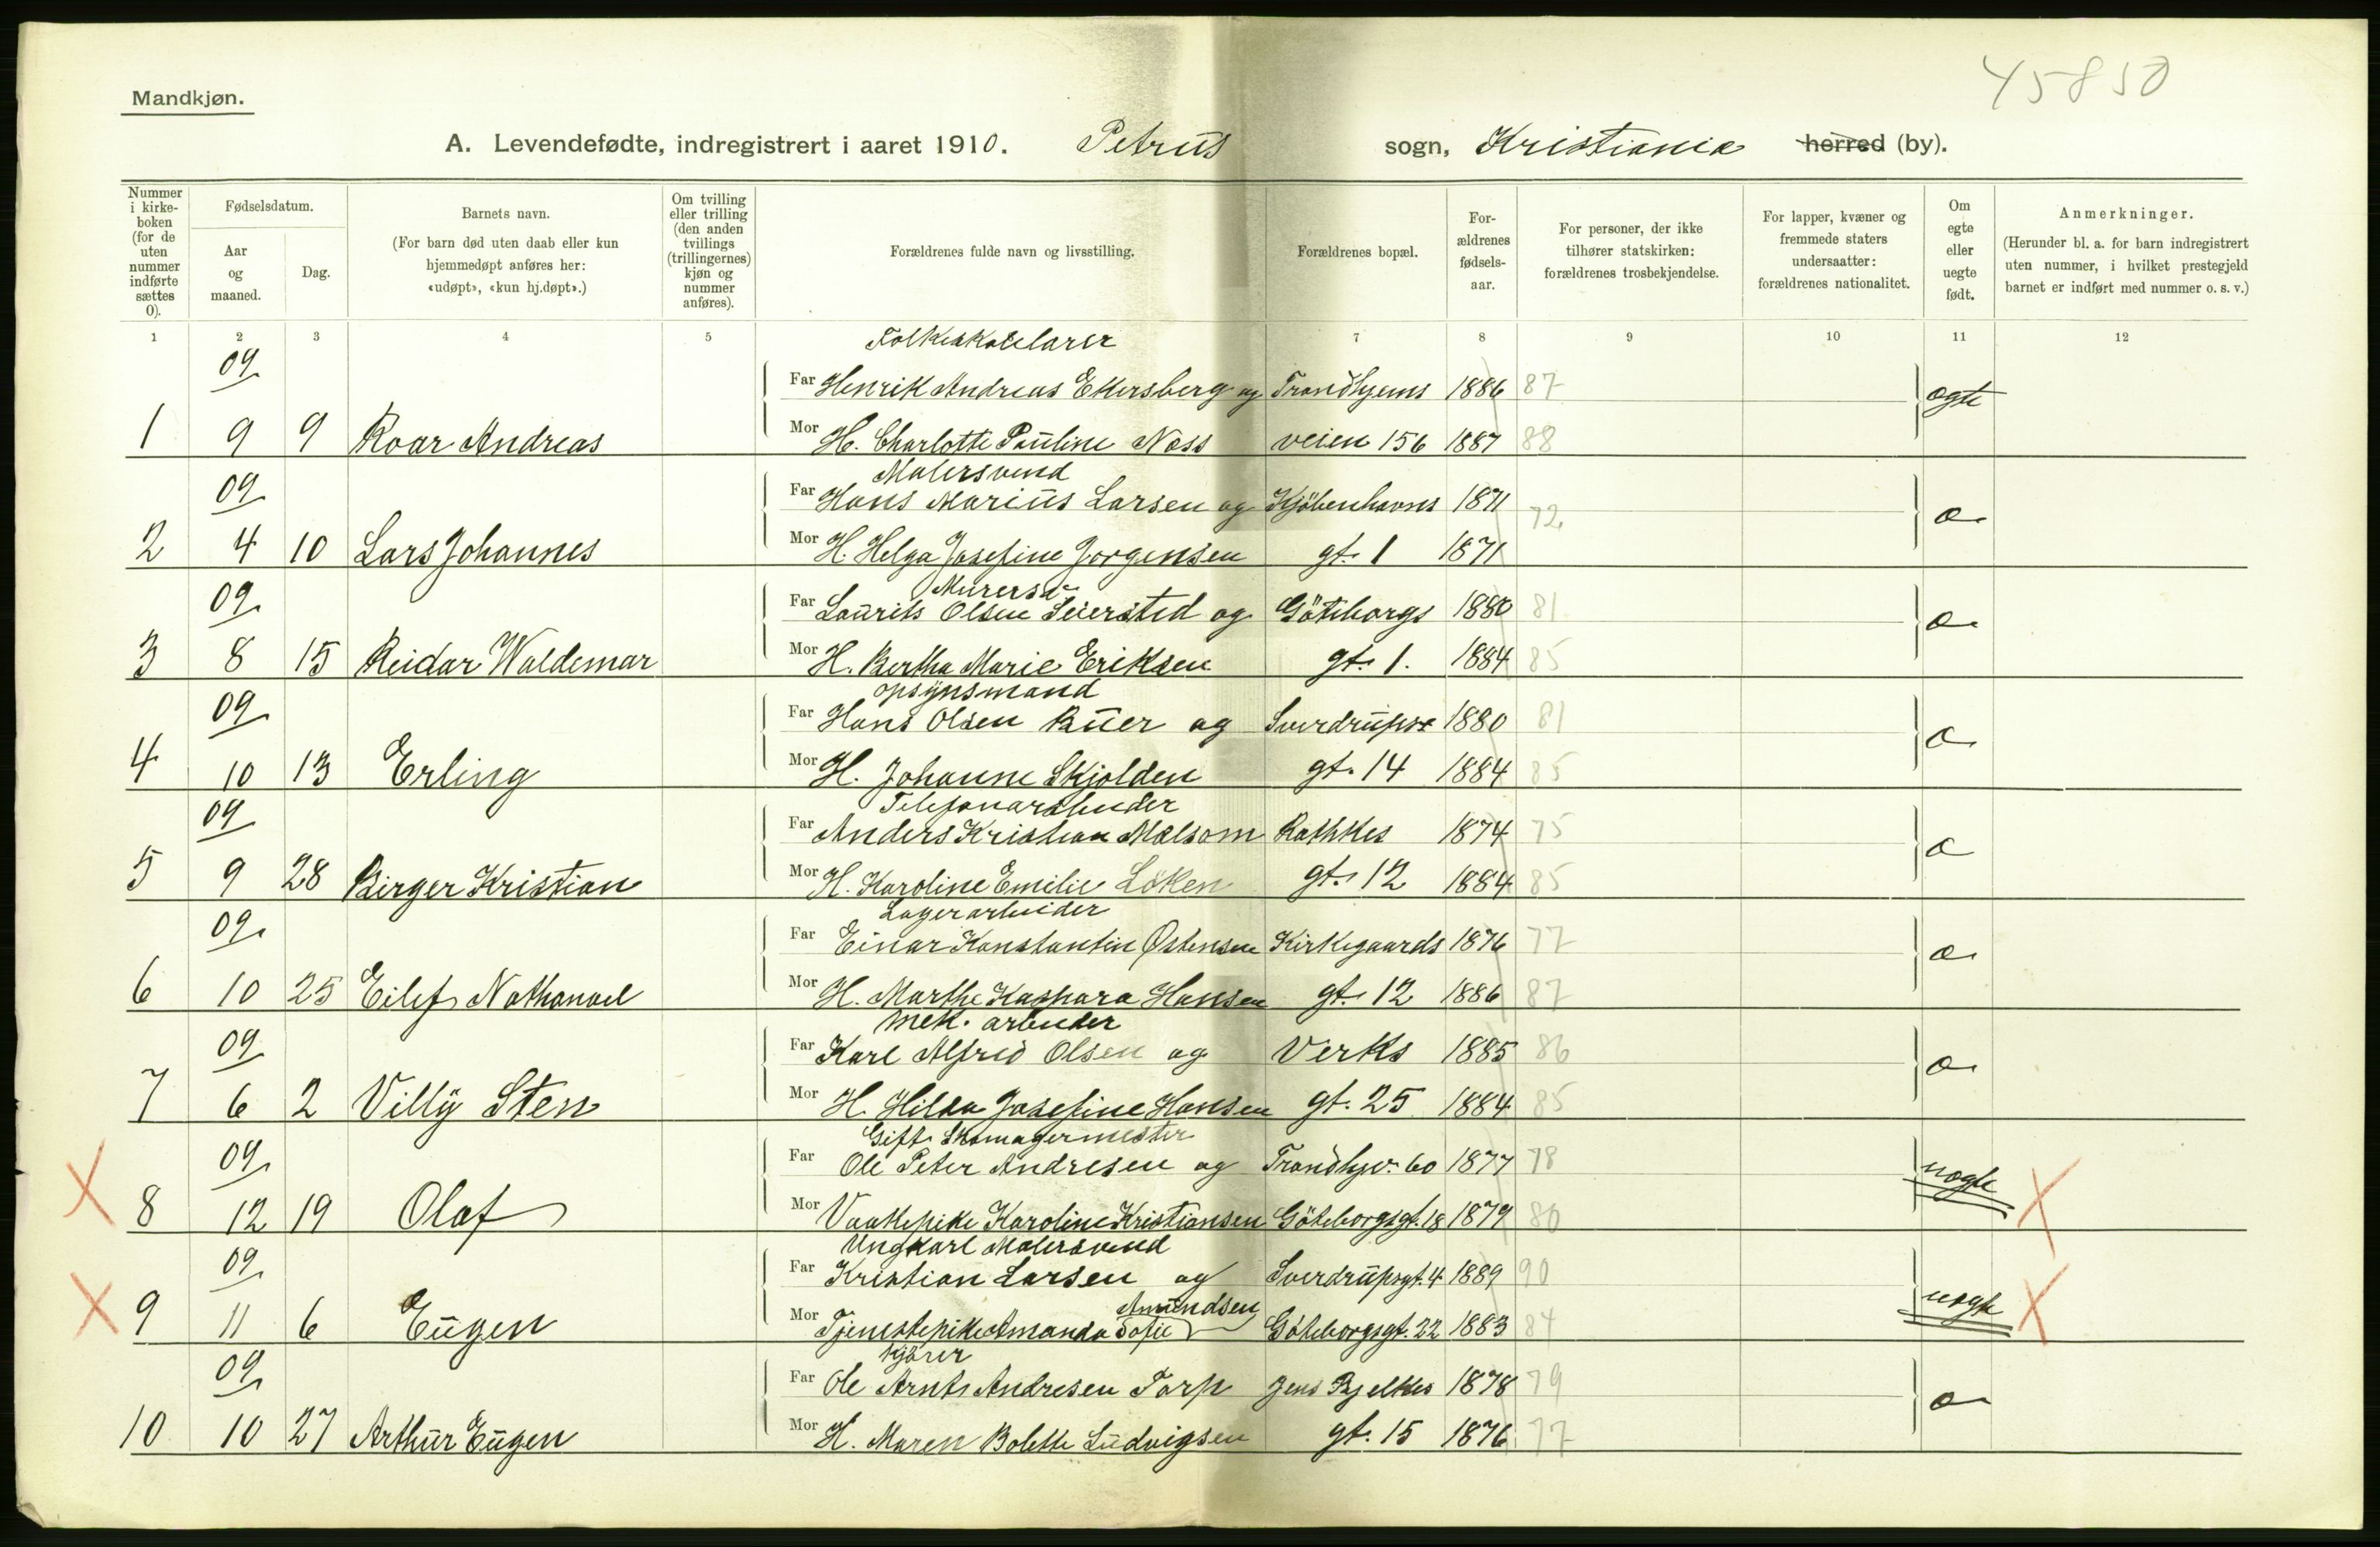 45850
Mandkjøn.
A. Levendefødte, indregistrert i aaret 1910. Petrus sogn, Kristiania herred (by).
Nummer i kirke-boken (for de uten nummer indførte sættes 0).
Fødselsdatum.
Aar og maaned.
Dag.
Barnets navn.
(For barn død uten daab eller kun hjemmedøpt anføres her: «udøpt», «kun hj.døpt».)
Om tvilling eller trilling (den anden tvillings (trillingernes) kjøn og nummer anføres).
Forældrenes fulde navn og livsstilling.
Forældrenes bopæl.
For-ældrenes fødsels-aar.
For personer, der ikke tilhører statskirken: forældrenes trosbekjendelse.
For lapper, kvæner og fremmede staters undersaatter: forældrenes nationalitet.
Om egte eller uegte født.
Anmerkninger.
(Herunder bl. a. for barn indregistrert uten nummer, i hvilket prestegjeld barnet er indført med nummer o. s. v.)
1 2 3 4 5 7 8 9 10 11 12
Folkeskolelærer
09 Far Henrik Andreas Ekersberg og Trondhjems 1886 87 egte
1 9 9 Roar Andreas Mor H. Charlotte Pauline Næss veien 156 1887 88
Malersvend
09 Far Hans Marius Larsen og Kjöbenhavns 1871 72 e
2 4 10 Lars Johannes Mor H. Helga Josefine Jorgensen gt. 1 1871
Murersv
09 Far Laurits Olsen Seiersted og Göteborgs 1880 81 e
3 8 15 Reidar Waldemar Mor H. Bertha Marie Eriksen gt. 1. 1884 85
opsynsmand
09 Far Hans Olsen Buer og Sverdrups 1880 81 e
4 10 13 Erling Mor H. Johanne Skjolden gt. 14 1884 85
Telefonarbeider
09 Far Anders Kristian Mælsom Rathkes 1874 75 e
5 9 28 Birger Kristian Mor H. Karoline Emilie Löken gt. 12 1884 85
Lagerarbeider
09 Far Einar Konstantin Østensen Kirkegaards 1876 77 e
6 10 25 Eilef Nathanael Mor H. Marthe Kaspara Hansen gt. 12 1886 87
mek. arbeider
09 Far Karl Alfred Olsen og Verks 1885 86 e
7 6 2 Villy Sten Mor H. Hilda Josefine Hansen gt. 25 1884 85
Gift Skomagermester
09 Far Ole Peter Andresen og Trondhjv. 60 1877 78 uegte
8 12 19 Olaf Mor Vaskepike Karoline Kristiansen Göteborgsgt. 18 1879 80
Ungkarl Malersvend
09 Far Kristian Larsen og Sverdrupsgt. 4 1889 90 uegte
Amundsen
9 11 6 Eugen Mor Tjenestepike Amanda Sofie Göteborgsgt. 22 1883 84
Kjörer
09 Far Ole Arnt Andresen Torp Jens Bjelkes 1878 79 e
10 10 27 Arthur Eugen Mor H. Maren Bolette Ludvigsen gt. 15 1876 77